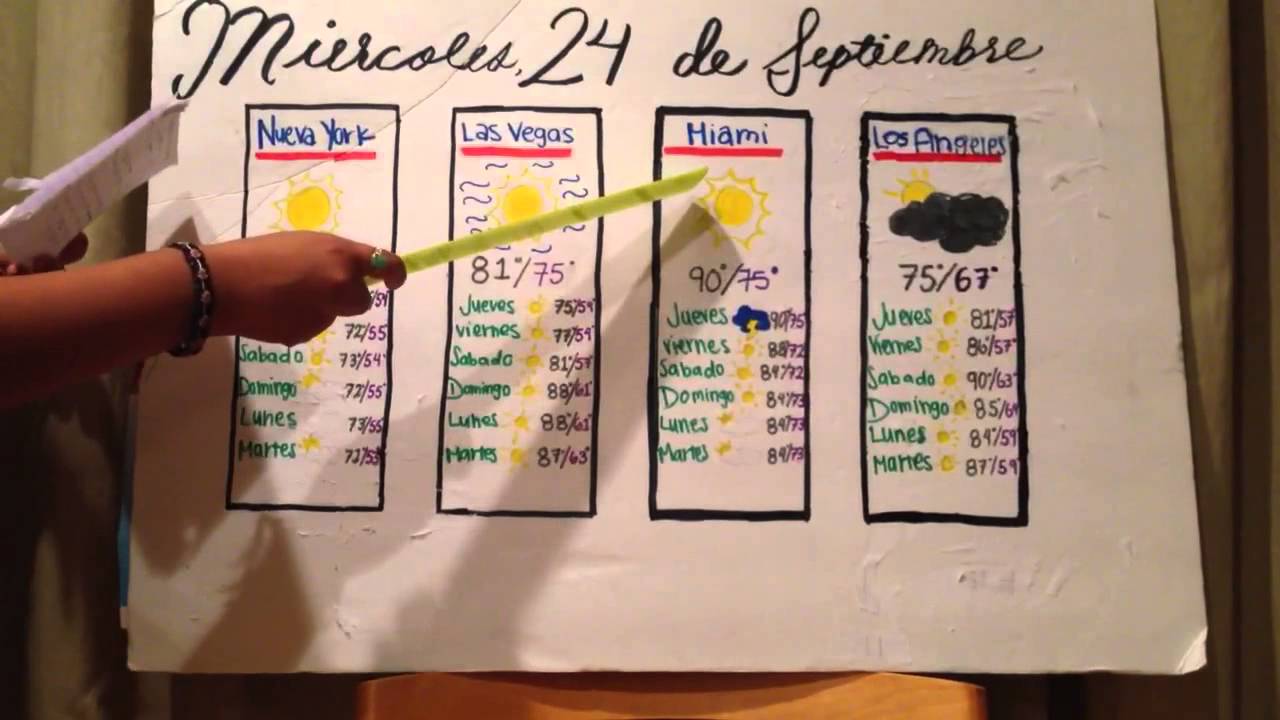 Miercoles, 24 de Septiembre
Nueva York
72/55
Sabado 73/54°
Domingo 72/55°
Lunes 73/55
Martes
Las Vegas
81°/75°
Jueves 75/59°
Viernes 77/59°
Sabado 81/59°
Domingo 88/61°
Lunes 88°/61°
Martes 87/63°
Miami
90°/75°
Jueves 90/75
Viernes 88/72
Sabado 89/72
Domingo 89/73
Lunes 89/73
Martes 89/73
Los Angeles
75°/67°
Jueves 81°/57
Viernes 86°/57°
Sabado 90°/63°
Domingo 85/64
Lunes 84°/59
Martes 87°/59